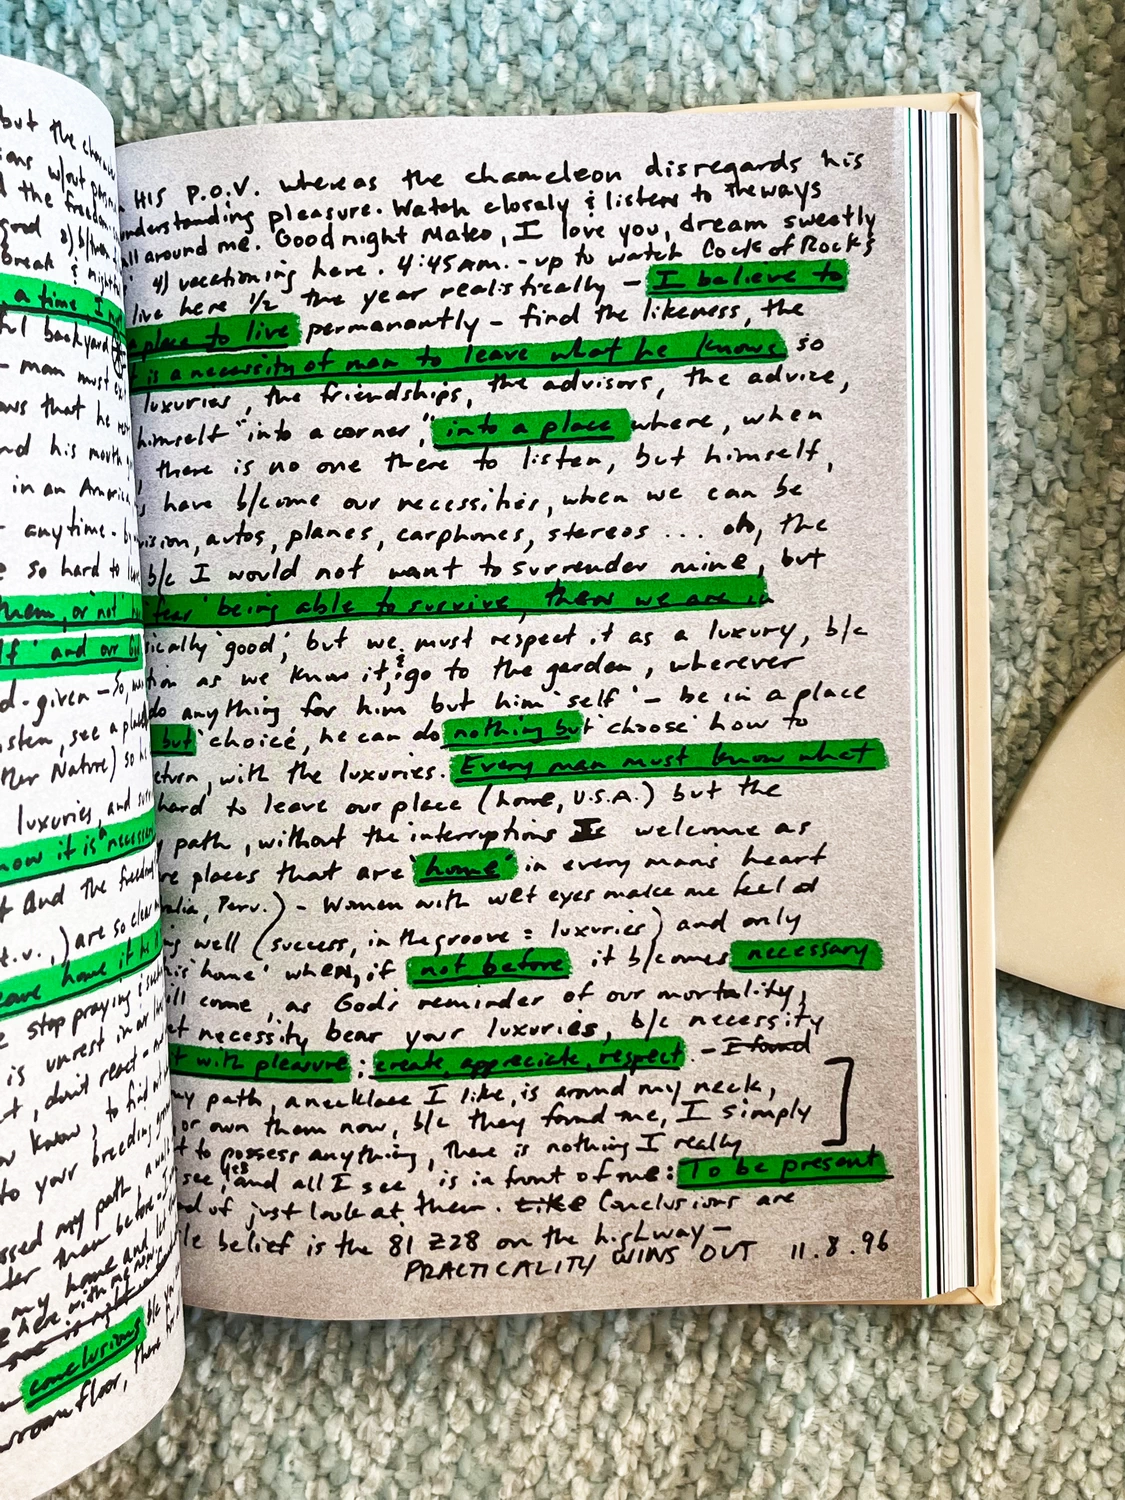 but the
ions w/out
d the freedom
good
break & night
a time I
ful backyard
- man must
ows that he
nd his mouth
in an America
anytime.
e so hard to
them, or 'not'
lf' and our
d-given - So,
isten, see a place
ther Nature) so
luxuries, and
now it is necessary
And the freedom
t.v.,) are so clear
leave home it is
stop praying &
is unrest in
, don't react -
know, to find
to your breeding
ssed my path, a
them before -
my home and let
with me now
conclusions b/c you
room floor, there
HIS P.O.V. whereas the chameleon disregards his
understanding pleasure. Watch closely & listen to the ways
all around me. Goodnight Mateo, I love you, dream sweetly
4) vacationing here. 4:45 AM. - up to watch Cock of Rocks
live here 1/2 the year realistically - I believe to
a place to live permanantly - find the likeness, the
is a necessity of man to leave what he knows so
luxuries, the friendships, the advisors, the advice,
himself "into a corner," into a place where, when
there is no one there to listen, but himself,
have b/come our necessities, when we can be
vision, autos, planes, carphones, stereos ... oh, the
b/c I would not want to surrender mine, but
'fear' being able to survive, then we are in
ically 'good', but we must respect it as a luxury, b/c
tion as we know it, & go to the garden, wherever
do anything for him but him 'self' - be in a place
but 'choice', he can do nothing but 'choose' how to
eturn, with the luxuries. Every man must know what
hard to leave our place (home, U.S.A.) but the
path, without the interruptions welcome as
re places that are 'home' in every man's heart
alia, Peru.) - Women with wet eyes make me feel
ng well (success, in the groove = luxuries) and only
his 'home' when, if not before it b/comes necessary
ill come, as God's reminder of our mortality,
et necessity bear your luxuries, b/c necessity
t with pleasure; create, appreciate, respect. - I found
my path, a necklace I like, is around my neck,
or own them now, b/c they found me, I simply
t to possess anything, there is nothing I really
see, yes and all I see, is in front of me: To be present
d of just look at them. Like Conclusions are
le belief is the 81 Z28 on the highway -
PRACTICALITY WINS OUT 11.8.96